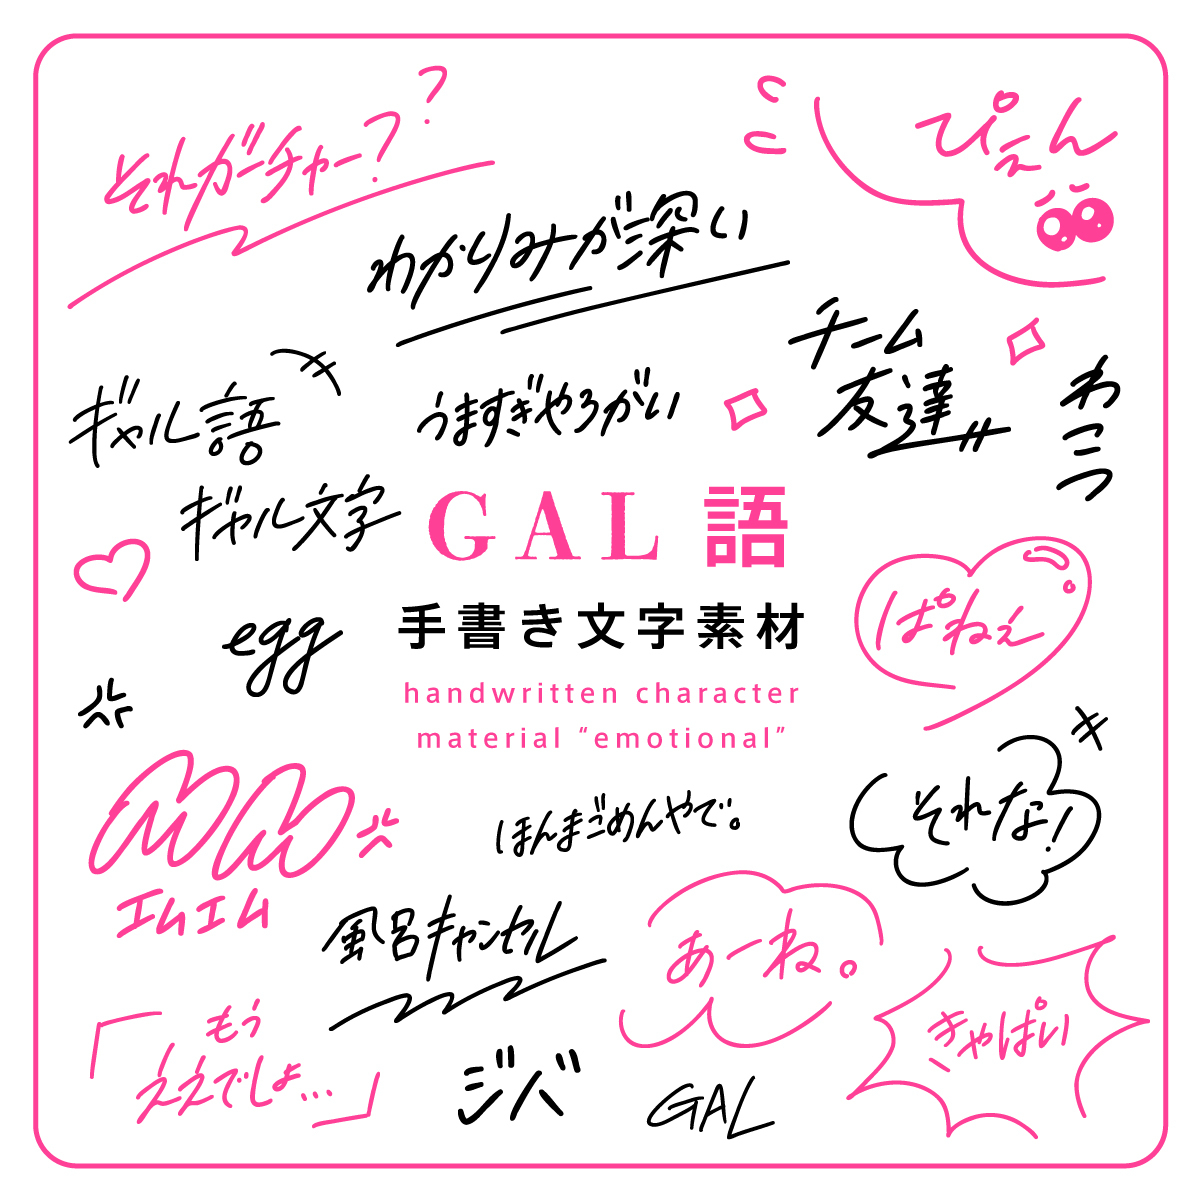 それガーチャー??
ぴえん
わかりみが深い
チーム
友達
わこつ
ギャル語
うますぎやろがい
ギャル文字
GAL 語
手書き文字素材
handwritten character
material “emotional”
egg
ぱねぇ
エムエム
ほんまごめんやで。
それな!
風呂キャンセル
あーね。
きゃぱい
「もう
ええでしょ...」
ジバ
GAL